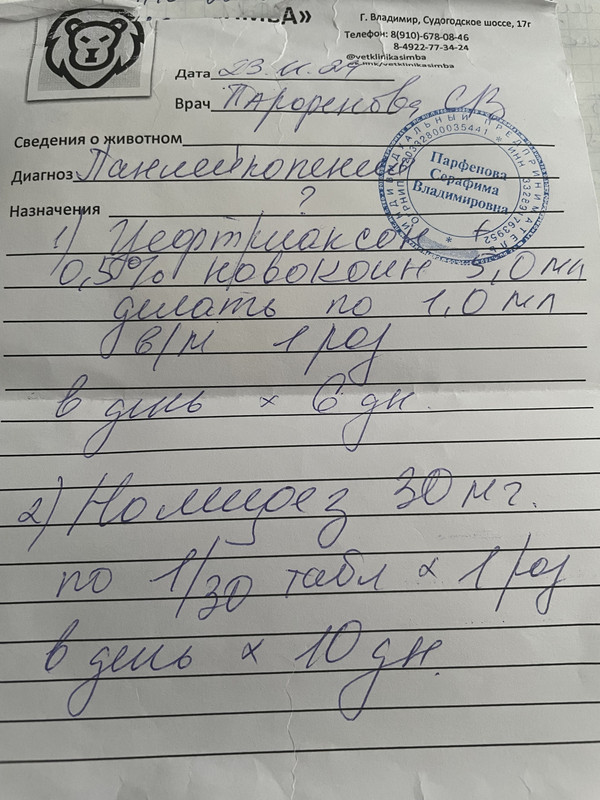 Г. Владимир, Судогодское шоссе, 17г
Телефон: 8(910)-678-08-46
8-4922-77-34-24
@vetklinikasimba
Дата 23.11.24
Врач Парфенова СВ
Сведения о животном
Диагноз Панлейкопения
Назначения ?
1) Цефтриаксон
0,5% новокоин 5,0 мл
делать по 1,0 мл
в/м 1 раз
в день × 6 дн.
2) Номидез 30 мг.
по 1/30 табл × 1 раз
в день × 10 дн.
ИНДИВИДУАЛЬНЫЙ ПРЕДПРИНИМАТЕЛЬ
Парфенова
Серафима
Владимировна